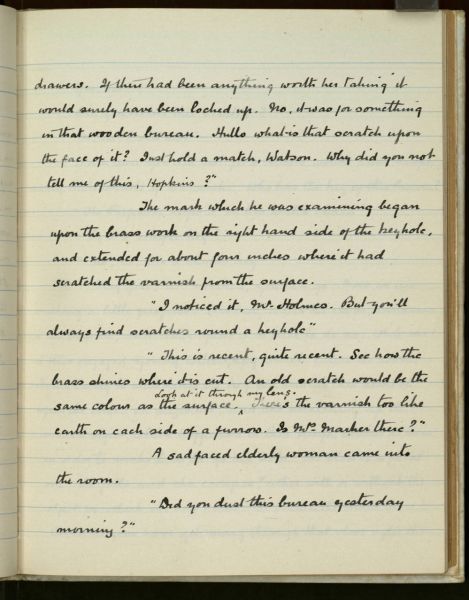 drawers. If there had been anything worth her taking it
would surely have been locked up. No, it was for something
in that wooden bureau. Hullo what is that scratch upon
the face of it? Just hold a match, Watson. Why did you not
tell me of this, Hopkins?"
The mark which he was examining began
upon the brass work on the right hand side of the keyhole,
and extended for about four inches where it had
scratched the varnish from the surface.
"I noticed it, Mr. Holmes. But you'll
always find scratches round a keyhole"
"This is recent, quite recent. See how the
brass shines where it is cut. An old scratch would be the
Look at it through my lens.
same colour as the surface. ^ There's the varnish too like
earth on each side of a furrow. Is Mrs Marker there?"
A sad faced elderly woman came into
the room.
"Did you dust this bureau yesterday
morning?"